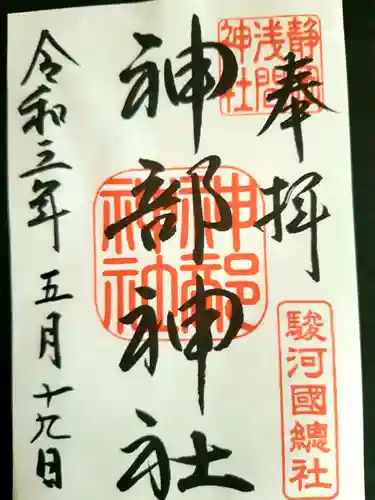 奉拝
静岡浅間神社
駿河國總社
神部神社
神部神社
令和三年五月十九日